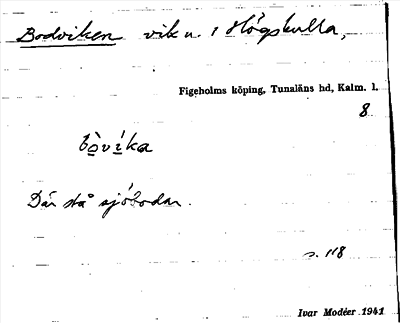 Bodviken vik u. 1 Högskulla,
Figeholms köping, Tunaläns hd, Kalm. l.
8
bòvíka
Där stå sjöbodar.
s. 118
Ivar Modéer 1941